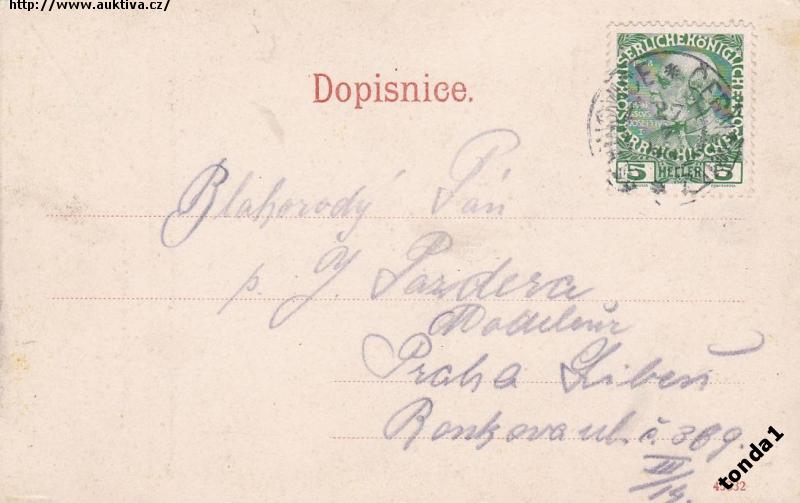 http://www.auktiva.cz/
Dopisnice.
KAISERLICHE KÖNIGLICHE
ÖSTERREICHISCHE POST
5 HELLER 5
Blahorodý Pán
p. J. Pazdera
Modelleur
Praha Libeň
Ronkova ul. č. 369.
III/14.
tonda1